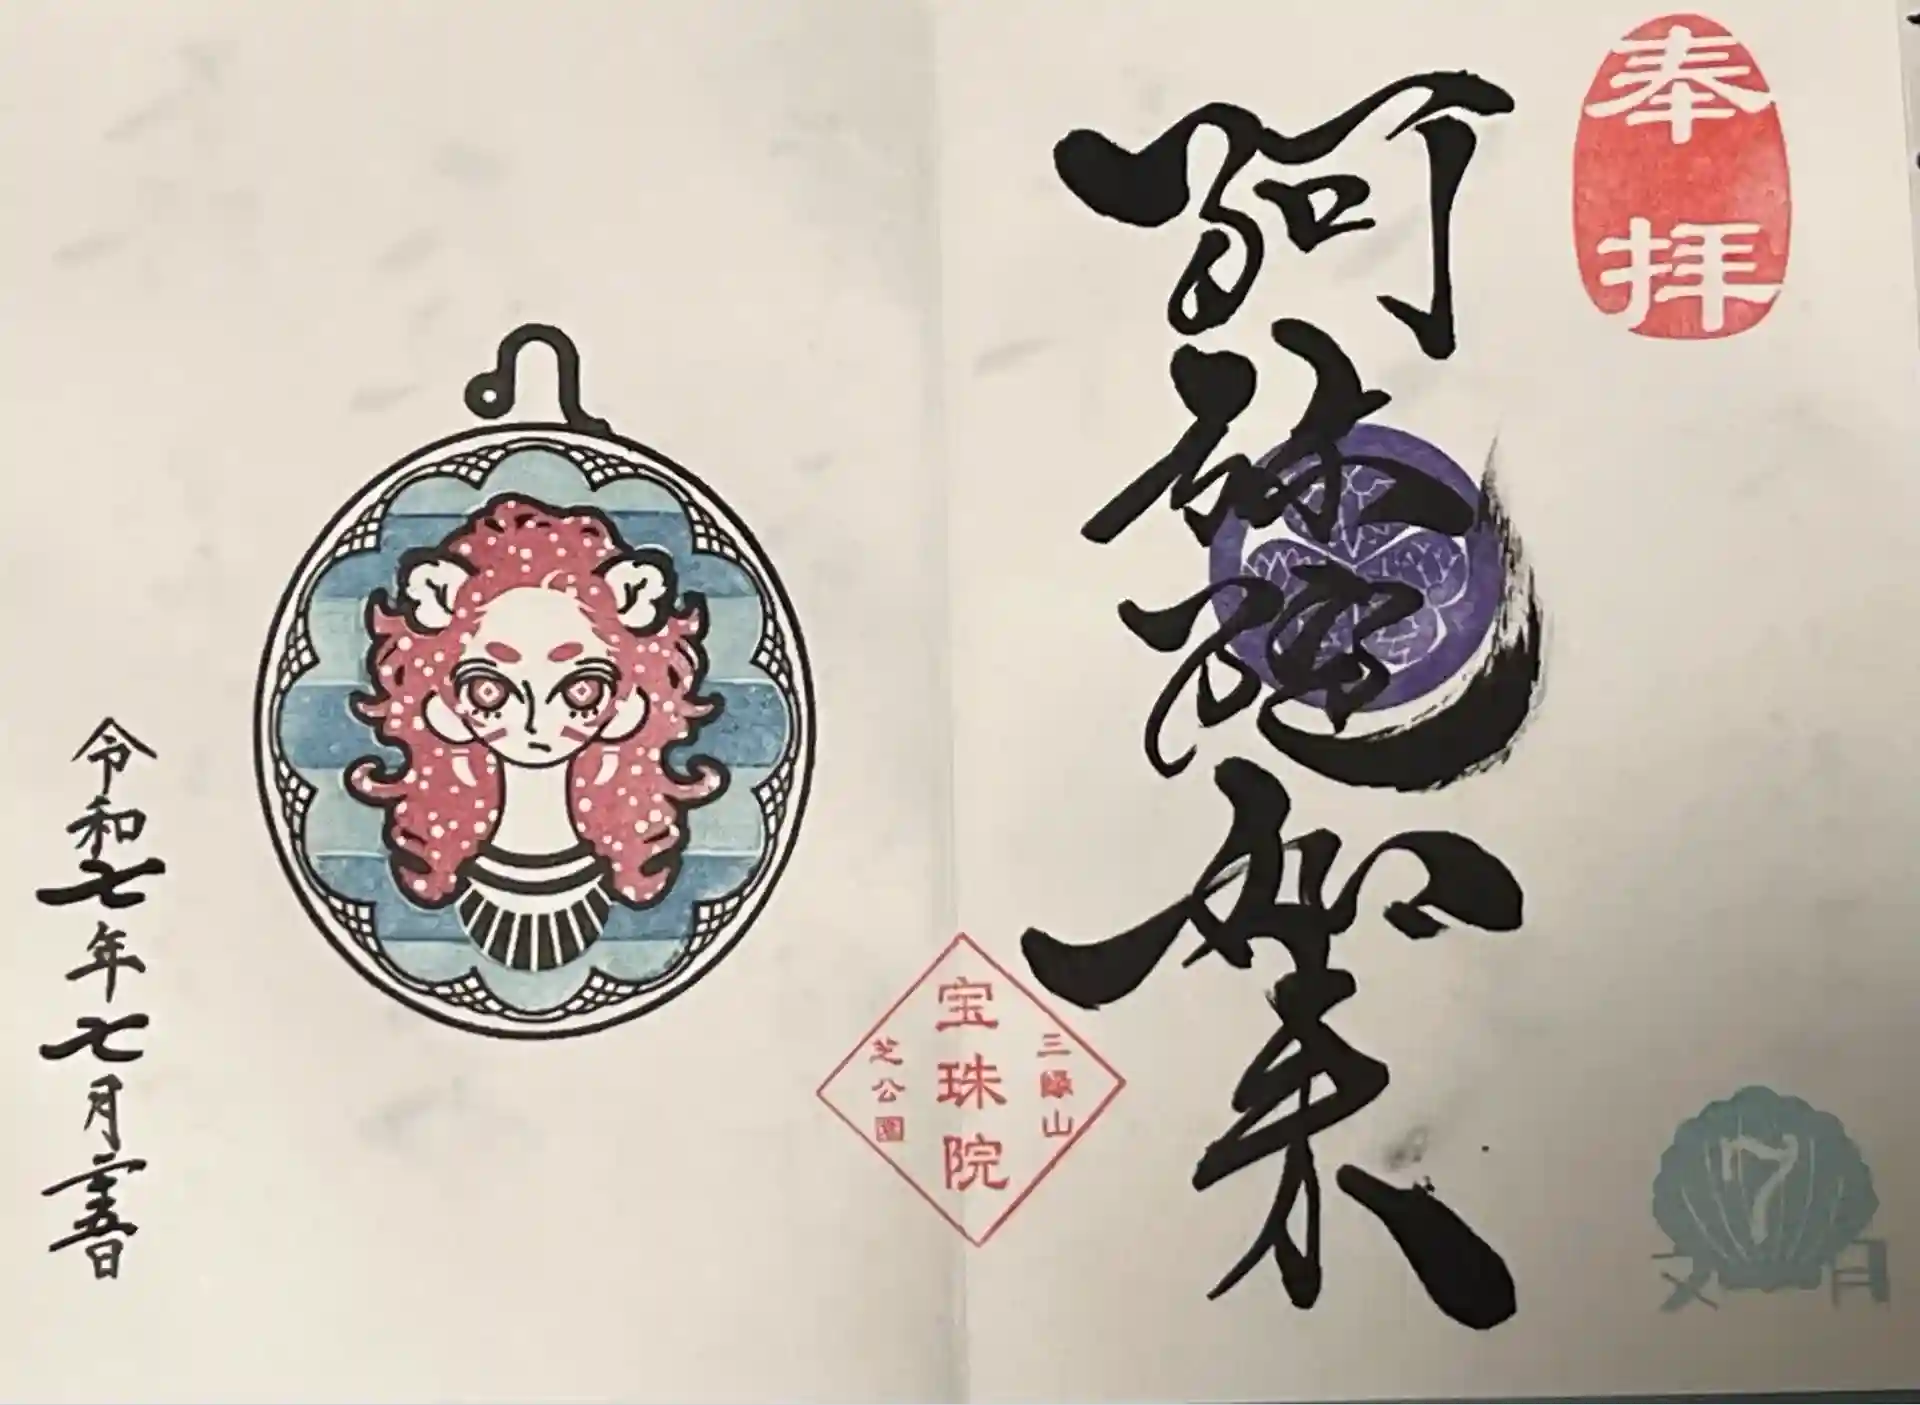 奉拝
7
文月
阿弥陀如来
三縁山
宝珠院
芝公園
令和七年七月二十五日